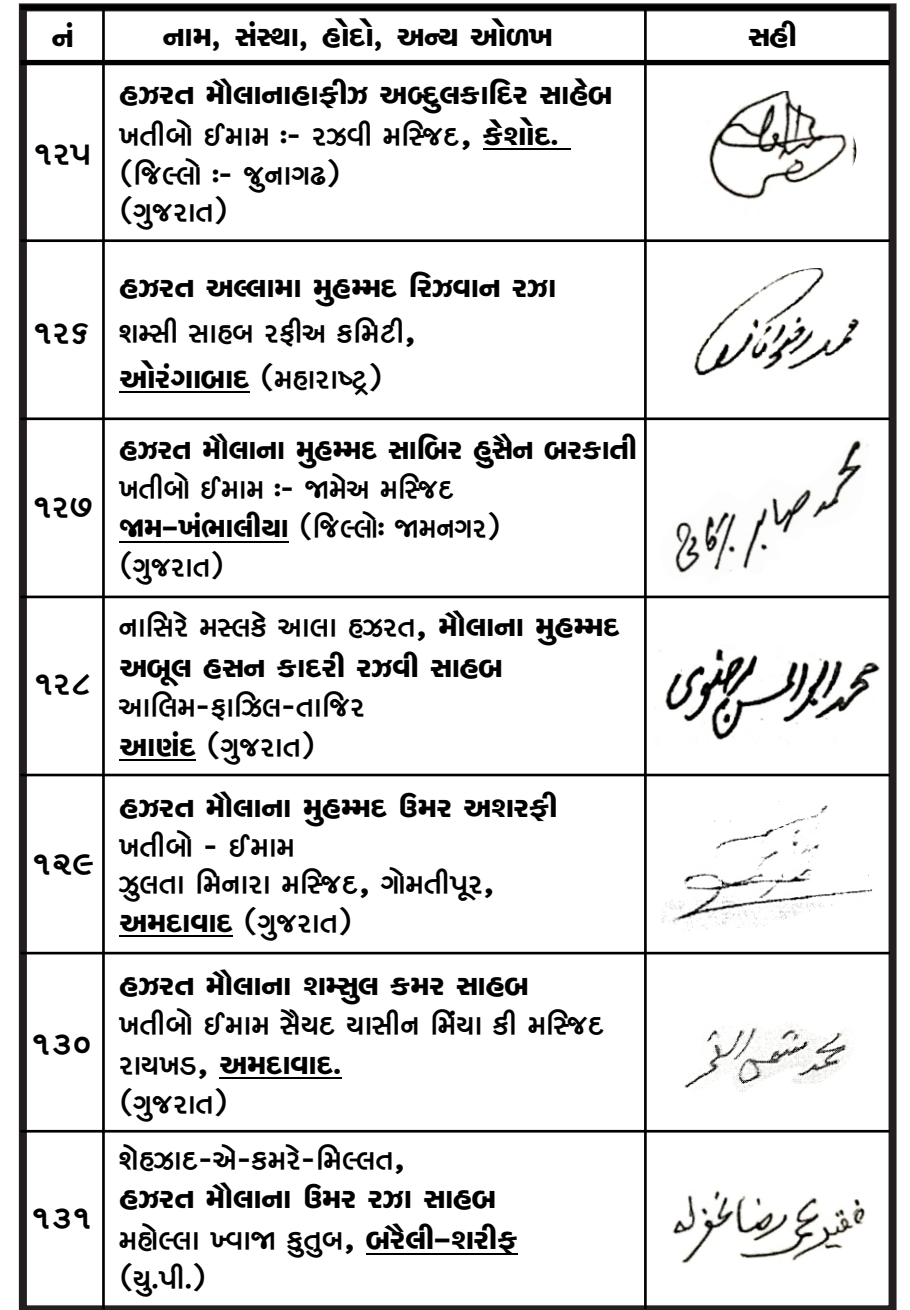 નં નામ, સંસ્થા, હોદો, અન્ય ઓળખ સહી
૧૨૫
હઝરત મૌલાનાહાફીઝ અબ્દુલકાદિર સાહેબ
ખતીબો ઈમામ :- રઝવી મસ્જિદ, કેશોદ.
(જિલ્લો :- જુનાગઢ)
(ગુજરાત)
૧૨૬
હઝરત અલ્લામા મુહમ્મદ રિઝવાન રઝા
શમ્સી સાહબ રફીઅ કમિટી,
ઓરંગાબાદ (મહારાષ્ટ્ર)
محمد رضوان
૧૨૭
હઝરત મૌલાના મુહમ્મદ સાબિર હુસૈન બરકાતી
ખતીબો ઈમામ :- જામેઅ મસ્જિદ
જામ-ખંભાલીયા (જિલ્લોઃ જામનગર)
(ગુજરાત)
محمد صابر برکاتی
૧૨૮
નાસિરે મસ્લકે આલા હઝરત, મૌલાના મુહમ્મદ
અબૂલ હસન કાદરી રઝવી સાહબ
આલિમ-ફાઝિલ-તાજિર
આણંદ (ગુજરાત)
محمد ابوالحسن رضوی
૧૨૯
હઝરત મૌલાના મુહમ્મદ ઉમર અશરફી
ખતીબો - ઈમામ
ઝુલતા મિનારા મસ્જિદ, ગોમતીપૂર,
અમદાવાદ (ગુજરાત)
૧૩૦
હઝરત મૌલાના શમ્સુલ કમર સાહબ
ખતીબો ઈમામ સૈયદ યાસીન મિંયા કી મસ્જિદ
રાયખડ, અમદાવાદ.
(ગુજરાત)
محمد شمس القمر
૧૩૧
શેહઝાદ-એ-કમરે-મિલ્લત,
હઝરત મૌલાના ઉમર રઝા સાહબ
મહોલ્લા ખ્વાજા કુતુબ, બરૈલી-શરીફ
(યુ.પી.)
فقیر عمر رضا غفرلہ